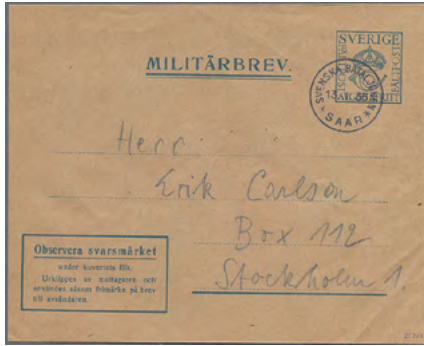 MILITÄRBREV.
SVERIGE
SVENSKA BATALJONEN
SAAR
Herr
Erik Carlson
Box 112
Stockholm 1.
Observera svarsmärket
under kuvertets flik.
Urklippes av mottagaren och
användes såsom frimärke på brev
till avsändaren.